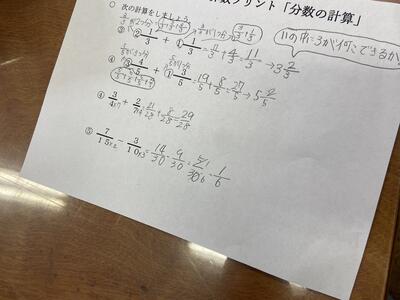 算数プリント「分数の計算」
○ 次の計算をしましょう。
③ 2 1/3 + 1 1/3 = 7/3 + 4/3 = 11/3 → 3 2/3
11の中に3が何こできるか
④ 3 4/5 + 1 3/5 = 19/5 + 8/5 = 27/5 → 5 2/5
④ 3/4×7 + 2/7×4 = 21/28 + 8/28 = 29/28
⑤ 7/15×2 − 3/10×3 = 14/30 − 9/30 = 5 1/30 6 = 1/6